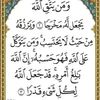 وَمَن يَتَّقِ ٱللَّهَ
يَجْعَل لَّهُۥ مَخْرَجًا ۝ وَيَرْزُقْهُ
مِنْ حَيْثُ لَا يَحْتَسِبُ ۚ وَمَن يَتَوَكَّلْ
عَلَى ٱللَّهِ فَهُوَ حَسْبُهُۥٓ ۚ إِنَّ ٱللَّهَ
بَٰلِغُ أَمْرِهِۦ ۚ قَدْ جَعَلَ ٱللَّهُ
لِكُلِّ شَىْءٍ قَدْرًا ۝